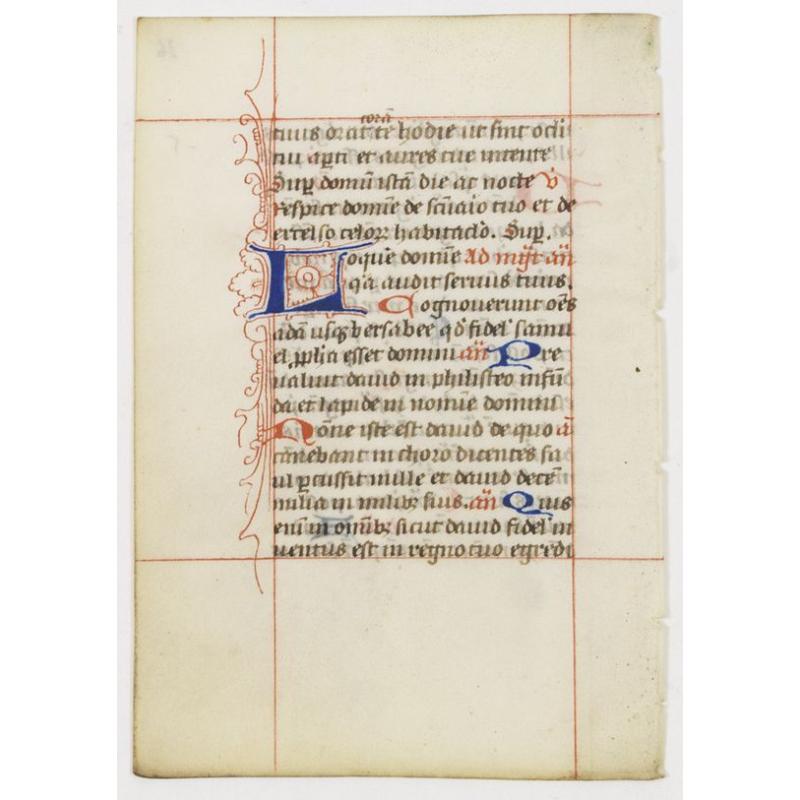 corā
tuus orat te hodie ut sint oculi
tui aꝑti et aures tue intente
Suꝑ domū istā die ac nocte v̄
Respice domīe de sc̄uaio tuo et de
excelso celoꝝ habitac̄lo. Suꝑ.
Loquē domīe Ad mḡt añ
q̇a audit seruus tuus.
Cognouerunt oēs
a dā usqꝫ bersabee qd̄ fidel' samu
el ꝓph̄a esset domini añ Pre
ualuit dauid in philisteo in fūn
da et lapide in nomīe domini
Nōne iste est dauid de quo ā
canebant in choro dicentes sa
ul ꝑcussit mille et dauid decē
milia in milibꝫ suis. añ Quis
enī in om̄ibꝫ sicut dauid fidel' in
uentus est in regno tuo egredi